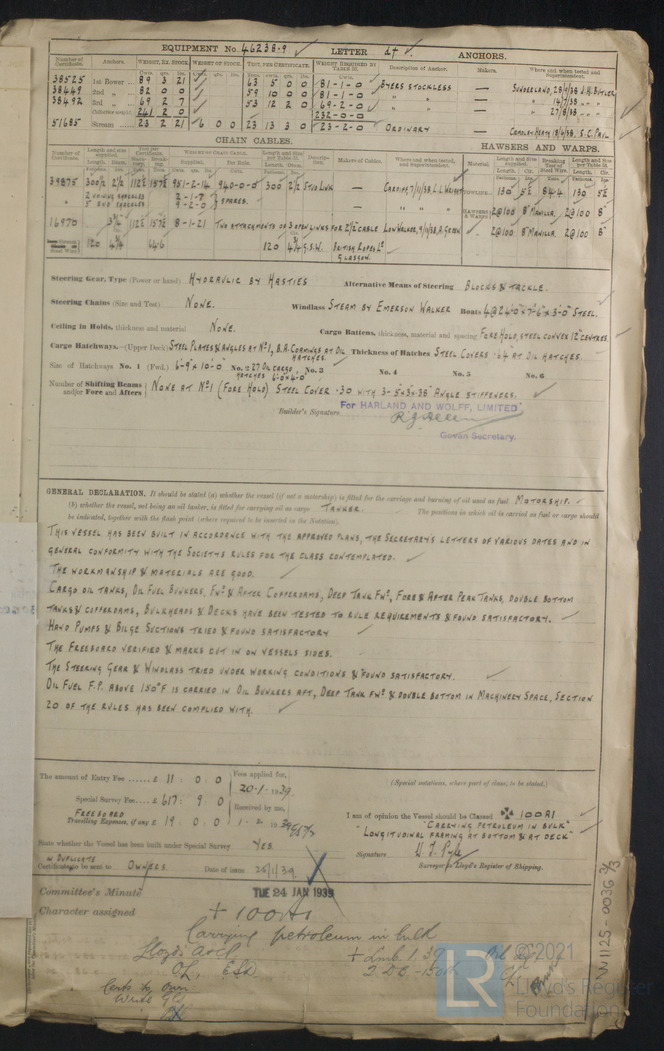 EQUIPMENT No. 46238.9 LETTER dt ANCHORS.
Number of Certificate. Anchors. WEIGHT, EX. STOCK. WEIGHT OF STOCK. TEST, PER CERTIFICATE. WEIGHT REQUIRED BY TABLE 22. Description of Anchor. Makers. Where and when tested and Superintendent.
38525 1st Bower 89 3 21 63 5 0 0 81-1-0 BYERS STOCKLESS — SUNDERLAND, 28/9/38 J.H. BUTLER
38449 2nd „ 82 0 0 59 10 0 0 81-1-0 „ „ — „ 14/7/38 „
38492 3rd „ 69 2 7 53 12 2 0 69-2-0 „ „ — „ 27/8/38 „
241 2 0 232-0-0
51685 Stream 23 2 21 6 0 0 23 13 3 0 23-2-0 ORDINARY — CRADLEY HEATH, 18/4/38. S.C. PAUL
CHAIN CABLES. HAWSERS AND WARPS.
39875 300½ 2½ 112½ 157½ 951-2-14 940-0-0 300 2½ STUD LINK — CARDIFF, 7/11/38, L.L. WRIGHT 130 5½ 84.4 130 5½
2 JOINING SHACKLES 2-1-7
5 END SHACKLES 9-2-0 } SPARES. 2@100 8" MANILLA. 2@100 8"
16970 3⅝ 112½ 157½ 8-1-21 TWO ATTACHMENTS OF 3 OPEN LINKS FOR 2½ CABLE LOW WALKER, 9/11/38, A. GREEN 2@100 8" MANILLA. 2@100 8"
120 4¾ 64.6 120 4¾ G.S.W. BRITISH ROPES LD GLASGOW.
Steering Gear, Type (Power or hand) HYDRAULIC BY HASTIES Alternative Means of Steering BLOCKS & TACKLE.
Steering Chains (Size and Test) NONE. Windlass STEAM BY EMERSON WALKER Boats 4@24'-0"×7'-6"×3'-0" STEEL.
Ceiling in Holds, thickness and material NONE. Cargo Battens, thickness, material and spacing FORE HOLD, STEEL CONVEX 12" CENTRES.
Cargo Hatchways.—(Upper Deck) STEEL PLATES & ANGLES AT Nº1, B.A. COAMINGS AT OIL HATCHES. Thickness of Hatches STEEL COVERS .64 AT OIL HATCHES.
Size of Hatchways No. 1 (Fwd.) 6-9"×10-0" No. 2 27 OIL CARGO HATCHES 6-0"×4-0" No. 3 No. 4 No. 5 No. 6
Number of Shifting Beams and/or Fore and Afters } NONE AT Nº1 (FORE HOLD) STEEL COVER .30 WITH 3-5"×3"×.38" ANGLE STIFFENERS.
Builder's Signature For HARLAND AND WOLFF, LIMITED
Govan Secretary.
GENERAL DECLARATION. It should be stated (a) whether the vessel (if not a motorship) is fitted for the carriage and burning of oil used as fuel MOTORSHIP.
(b) whether the vessel, not being an oil tanker, is fitted for carrying oil as cargo TANKER. The positions in which oil is carried as fuel or cargo should
be indicated, together with the flash point (where required to be inserted in the Notation).
THIS VESSEL HAS BEEN BUILT IN ACCORDANCE WITH THE APPROVED PLANS, THE SECRETARY'S LETTERS OF VARIOUS DATES AND IN
GENERAL CONFORMITY WITH THE SOCIETY'S RULES FOR THE CLASS CONTEMPLATED.
THE WORKMANSHIP & MATERIALS ARE GOOD.
CARGO OIL TANKS, OIL FUEL BUNKERS, FWD & AFTER COFFERDAMS, DEEP TANK FWD, FORE & AFTER PEAK TANKS, DOUBLE BOTTOM
TANKS & COFFERDAMS, BULKHEADS & DECKS HAVE BEEN TESTED TO RULE REQUIREMENTS & FOUND SATISFACTORY.
HAND PUMPS & BILGE SUCTIONS TRIED & FOUND SATISFACTORY
THE FREEBOARD VERIFIED & MARKS CUT IN ON VESSELS SIDES.
THE STEERING GEAR & WINDLASS TRIED UNDER WORKING CONDITIONS & FOUND SATISFACTORY.
OIL FUEL F.P. ABOVE 150°F IS CARRIED IN OIL BUNKERS AFT, DEEP TANK FWD & DOUBLE BOTTOM IN MACHINERY SPACE, SECTION
20 OF THE RULES HAS BEEN COMPLIED WITH.
The amount of Entry Fee £ 11 : 0 : 0 Fees applied for, 20.1.1939 (Special notations, where part of class, to be stated.)
Special Survey Fee £ 617 : 9 : 0 Received by me,
FREEBOARD
Travelling Expenses, if any £ 19 : 0 : 0 1.2.1939
I am of opinion the Vessel should be Classed ✠ 100A1
"CARRYING PETROLEUM IN BULK"
"LONGITUDINAL FRAMING AT BOTTOM & AT DECK"
State whether the Vessel has been built under Special Survey YES
IN DUPLICATE
Certificate to be sent to OWNERS Date of issue 25/1/39
Signature H. J. Pyle
Surveyor to Lloyd's Register of Shipping.
Committee's Minute TUE 24 JAN 1939
Character assigned + 100A1
Carrying petroleum in bulk
Lloyds A&CP + LMC 1.39 Oil Eng
2 DB - 150lb
Certs to Own
Write Gls
W1125-0036 3/3
©2021
LR
Lloyd's Register
Foundation